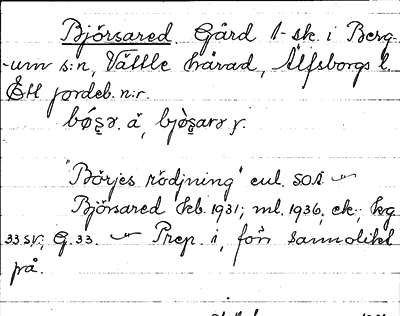 Björsared. Gård 1-sk. i Berg-
-um s:n, Vättle härad, Älfsborgs l.
Ett jordeb. n:r.
"Börjes rödjning" enl. SOÄ
Björsared kb. 1931; ml. 1936, ek.; kg
33 SV; G. 33. Prep. i, förr sannolikt
på.